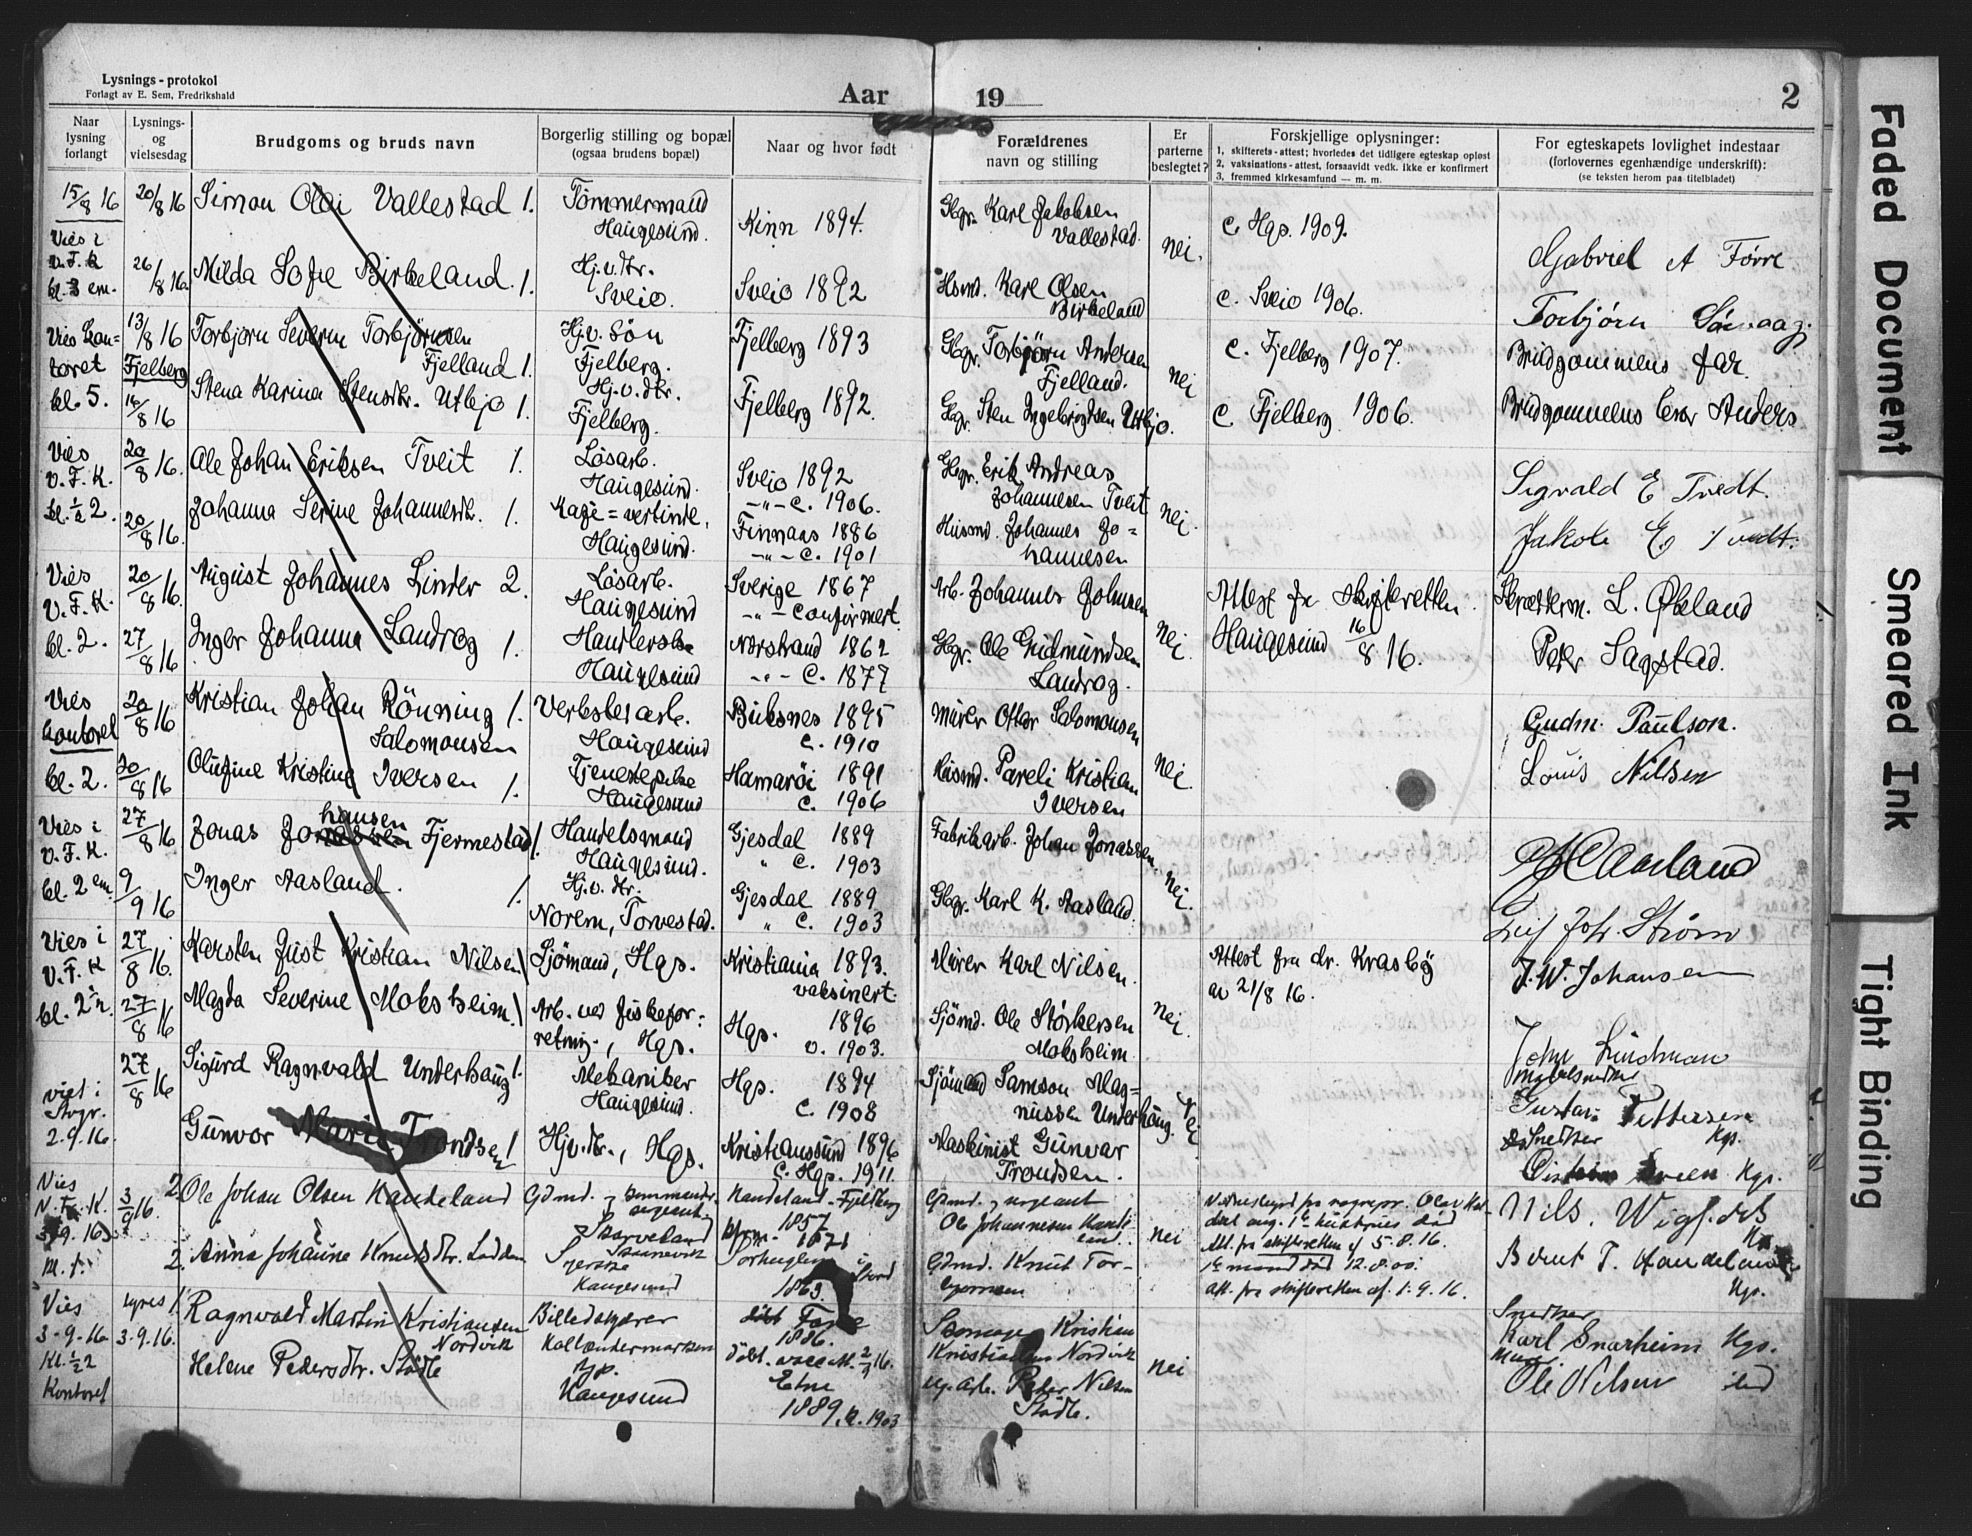 Lysnings-protokol
Forlagt av E. Sem, Fredrikshald
Aar 19 2
Naar lysning forlangt
Lysnings- og vielsesdag
Brudgoms og bruds navn
Borgerlig stilling og bopæl
(ogsaa brudens bopæl)
Naar og hvor født
Forældrenes
navn og stilling
Er parterne beslegtet?
Forskjellige oplysninger:
1, skifterets-attest; hvorledes det tidligere egteskap opløst
2, vaksinations-attest, forsaavidt vedk. ikke er konfirmert
3, fremmed kirkesamfund — m. m.
For egteskapets lovlighet indestaar
(forlovernes egenhændige underskrift):
(se teksten herom paa titelbladet)
15/8 16
Vies i
V.F.K
kl. 3 em.
20/8 16
26/8 16
Simon Olai Vallestad 1.
Milda Sofie Birkeland. 1.
Tømmermand
Haugesund.
Hj.v.dtr.
Sveio.
Kinn 1894.
Sveio 1892
Gbgr. Karl Jakobsen
Vallestad.
Hsmd. Karl Olsen
Birkeland
nei.
c. Hgs. 1909.
c. Sveio 1906.
Gabriel A Førre
Torbjørn
Vies Kon=
toret
kl. 5.
13/8 16
Fjelberg
16/8 16
Torbjørn Severin Torbjörnsen
Fjelland 1.
Stena Karina Stensdtr. Utbjo 1.
Hj.v. Søn
Fjelberg.
Hj.v.dtr.
Fjelberg.
Fjelberg 1893
Fjelberg 1892.
Gbgr. Torbjørn Andersen
Fjelland.
Gbgr. Sten Ingebrigtsen Utbjo.
nei
c. Fjelberg 1907.
c. Fjelberg 1906.
Brudgommens far.
Brudgommens bror Anders
Vies
V.F.K.
kl. ½ 2.
20/8 16.
20/8 16.
Ole Johan Eriksen Tveit 1.
Johanna Serine Johannesdtr. 1.
Løsarb.
Haugesund.
Kafé=vertinde,
Haugesund.
Sveio 1892
-"- c. 1906.
Finnaas 1886
-"- c. 1901
Gbgr. Erik Andreas
Johannesen Tveit
Husmd. Johannes Jo=
hannesen
nei.
Sigvald E Tvedt.
Jakob E. Tvedt.
Vies
V.F.K.
kl. 2.
20/8 16.
27/8 16
August Johannes Linder 2.
Inger Johanna Landrog 1.
Løsarb.
Haugesund
Handlerske
Haugesund
Sverige 1867
-"- Confirmert
Nerstrand 1862
-"- c. 1877
Arb. Johannes Johnsen
Gbgr. Ole Gudmundsen
Landrog.
nei.
Attest fr Skifteretten.
Haugesund 16/8 16.
Skræderm. L. Økland
Peter Sagstad.
Vies
kontoret
kl. 2.
20/8 16
20/8 16
Kristian Johan Rönning 1.
Salomonsen
Olufine Kristine Iversen 1.
Verkstedarb.
Haugesund
Tjenestepike
Haugesund
Buksnes 1895
c. 1910
Hamaröi 1891
c. 1906
Murer Ottar Salomonsen
Husmd. Pareli Kristian
Iversen
nei.
Gudm. Paulson.
Louis Nilsen
Vies i
V.F.K.
kl. 2 em.
27/8 16
9/9 16
hansen
Jonas Fjermestad 1.
Inger Aasland. 1.
Handelsmand
Haugesund.
Hj.v. dtr.
Norem, Torvestad.
Gjesdal 1889
" c. 1903
Gjesdal 1889
" c. 1903
Fabrikarb. Johan Jonassen
Gbgr. Karl K. Aasland.
nei.
Joh. Strøm
Vies i
V.F.K
kl. 2½.
27/8 16.
27/8 16
Karsten Just Kristian Nilsen 1
Magda Severine Moksheim. 1
Sjömand, Hgs.
Arb. ved fiskefor=
retning., Hgs.
Kristiania 1893.
vaksinert.
Hgs. 1896
c. 1903.
Murer Karl Nilsen.
Sjömd. Ole Störkersen
Moksheim.
nei.
Attest fra dr. Krasby
av 21/8 16.
J.W. Johansen
John Lindman
viet i
Avgr.
2.9.16.
27/8 16
Sigurd Ragnvald Underhaug 1.
Gunvor Marie Trondsen 1
Mekaniker
Haugesund.
Hj.v.dtr., Hgs.
Hgs. 1894
c. 1908
Kristianssund 1896
c. Hgs. 1911.
Sjömand Samson Mag=
nussen Underhaug.
Maskinist Gunvar
Trondsen.
nei
Gustav Pettersen
Snedker Hgs.
Hgs.
Vies
V.F.K.
3/9 16
kl. 1.
3/9 16.
2. Ole Johan Olsen Kandeland
2. Anna Johanne Knutsdtr.
Gdmd. og kommanders.
sergeant.
Skarveland
Skaanevik
Syerske
Haugesund
Kandeland - Fjelberg
1857
1871
Stord
1863.
Gdmd. og sergeant
Ole Johannesen Kande
land.
Gdmd. Knut Tor-
nei
Att. fra skifteretten af 5.8.16.
1e mand død 12.8.00.
att. fra skifteretten af 1.9.16.
Nils.
Bernt T. Handeland
Hgs.
Vies
3-9-16
Kl. ½2
Kontoret
lyses
3.9.16.
1. Ragnvald Martin Kristiansen
Nordvik
Helene Pedersdtr. Stödle
Billedskjærer
Haugesund
1886.
Døbt. vacc. att. 2/9 16.
Etne
1889, c. 1903
Kristian
Kristiansen Nordvik
Peder Nilsen
Stödle.
nei
Snedker
Karl Snarheim Hgs.
Murer
Ole Nilsen sted
Faded Document
Smeared Ink
Tight Binding